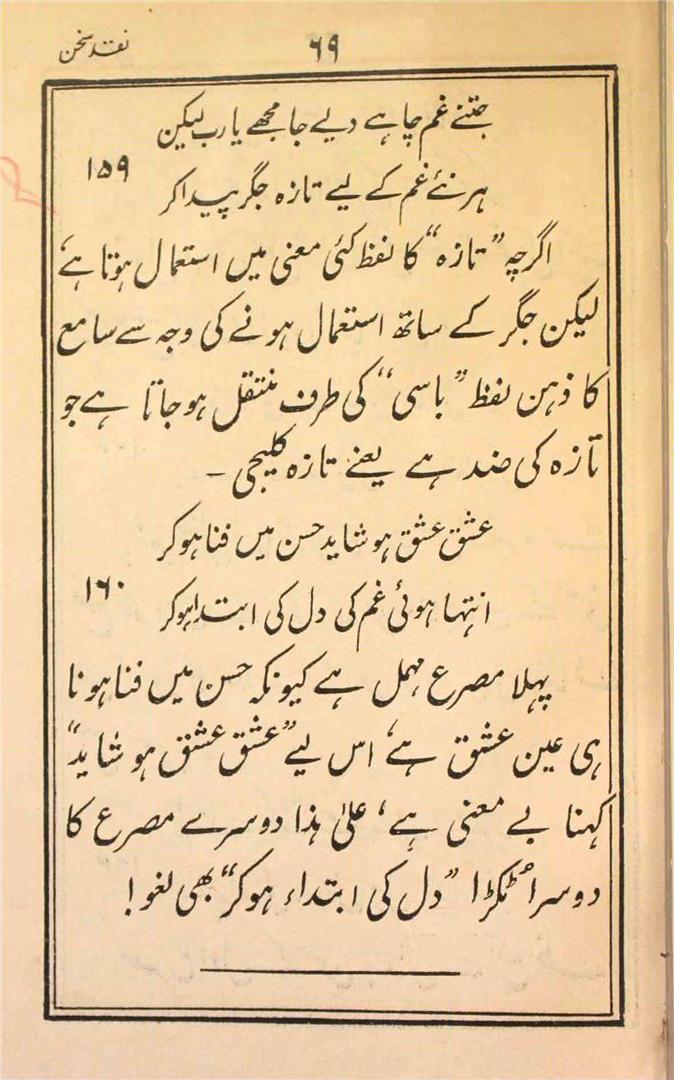 نقد سخن
۶۹
جتنے غم چاہے دیے جا مجھے یا رب لیکن
ہر نئے غم کے لیے تازہ جگر پیدا کر
۱۵۹
اگرچہ ”تازہ“ کا لفظ کئی معنی میں استعمال ہوتا ہے،
لیکن جگر کے ساتھ استعمال ہونے کی وجہ سے سامع
کا ذہن لفظ ”باسی“ کی طرف منتقل ہو جاتا ہے جو
تازہ کی ضد ہے یعنے تازہ کلیجی ۔
عشق عشق ہو شاید حسن میں فنا ہو کر
انتہا ہوئی غم کی دل کی ابتدا ہو کر
۱۶۰
پہلا مصرع مہمل ہے کیونکہ حسن میں فنا ہونا
ہی عین عشق ہے، اس لیے ”عشق عشق ہو شاید“
کہنا بے معنی ہے، علیٰ ہذا دوسرے مصرع کا
دوسرا ٹکڑا ”دل کی ابتداء ہو کر“ بھی لغو!